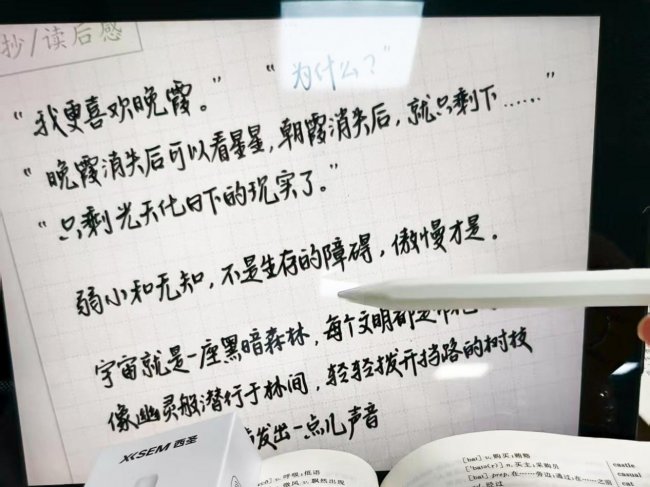 抄/读后感
“我更喜欢晚霞。” “为什么?”
“晚霞消失后可以看星星,朝霞消失后,就只剩下……”
“只剩光天化日下的现实了。”
弱小和无知,不是生存的障碍,傲慢才是。
宇宙就是一座黑暗森林,每个文明都是
像幽灵般潜行于林间,轻轻拨开挡路的树枝
发出一点儿声音
XKSEM 西圣
v. 呼吸;低语
微风 v. 飘然出现
[baɪ] v. 购买;贿赂
n. 买主;采购员
prep. 在……旁边;通过;在……之前
经过
castle
casual
cat